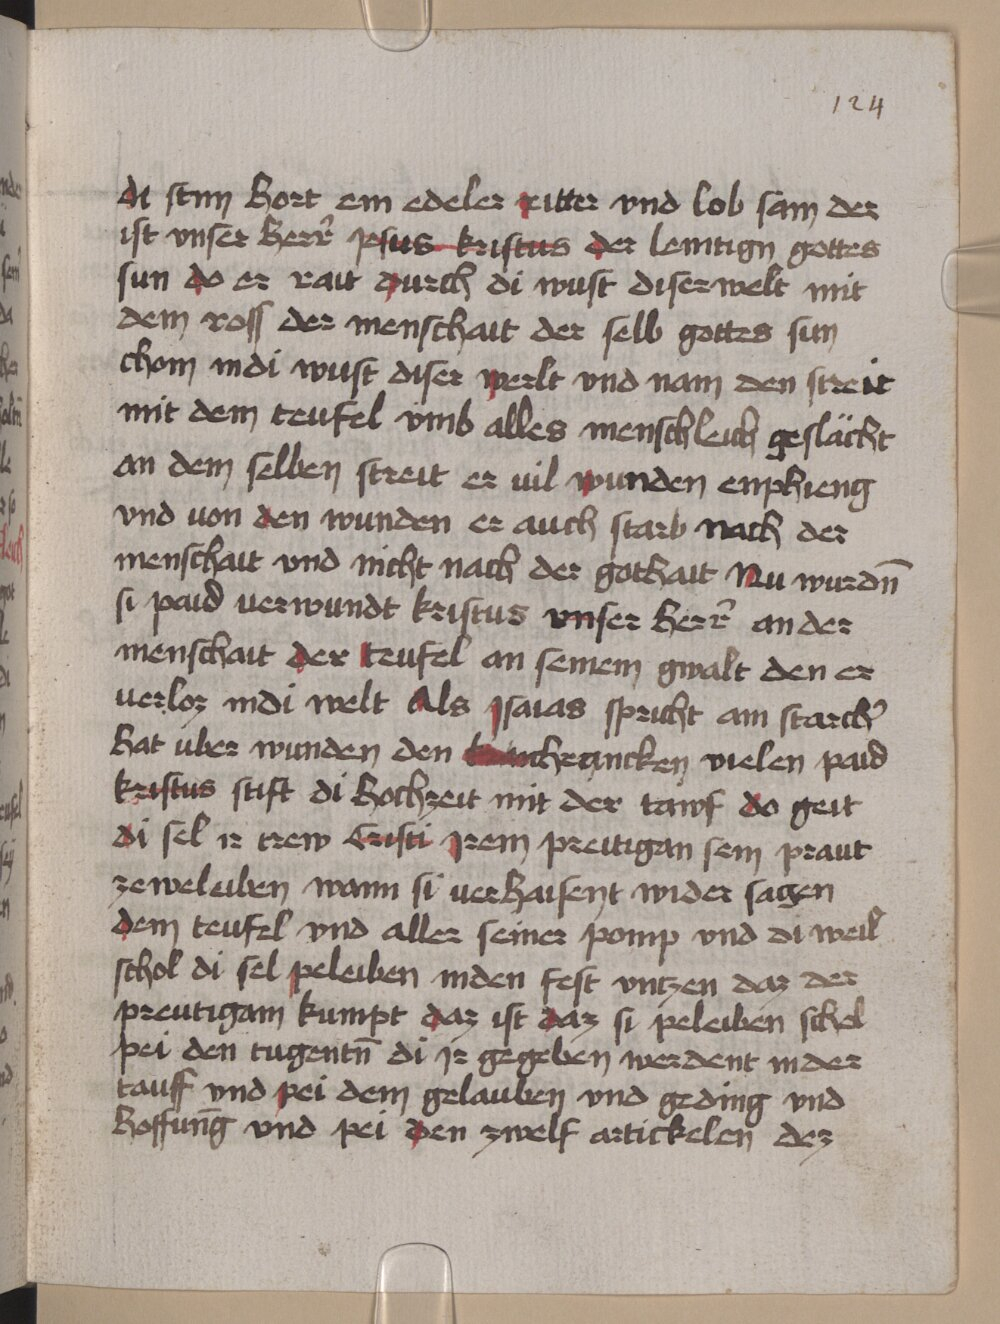 124
di stim hort ein edeler ritter vnd lob sam der
ist vnser herr̄ jesus kristus der lemtign gottes
sun do er rait durch di wust diser welt mit
dem ross der menschait der selb gottes sun
chom indi wust diser werlt vnd nam den streit
mit dem teufel vmb alles menschleich geslächt
an dem selben streit er uil wunden enphieng
vnd von den wunden er auch starb nach der
menschait vnd nicht nach der gothait Nu wurdn̄
si paid uerwundt kristus vnser herr̄ an der
menschait der teufel an seinem gwalt den er
uerloz indi welt Als jsaias spricht ain starch̄
hat uber wunden den chrancken vielen paid
kristus stift di hochzeit mit der tawf do geit
di sel ir trew Cristi jrem preutigan sein praut
zeweleiben wann si uerhaisent wider sagen
dem teufel vnd aller seiner pomp vnd di weil
schol di sel peleiben inden fest vntzen daz der
preutigam kumpt daz ist daz si peleiben schol
pei den tugentn̄ di jr gegeben werdent inder
tauff vnd pei dem gelauben vnd geding vnd
hoffunḡ vnd pei den zwelf artickelen dez